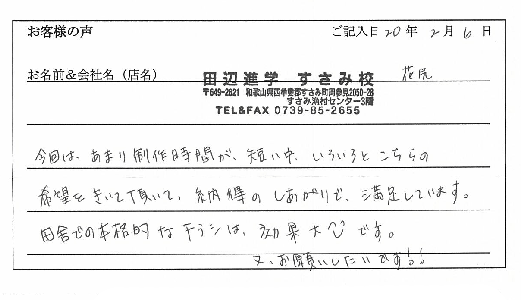 お客様の声 ご記入日 20 年 2 月 6 日
お名前＆会社名（店名） 田辺進学 すさみ校 花尻
〒649-2621 和歌山県西牟婁郡すさみ町周参見2050-28
すさみ漁村センター3階
TEL&FAX 0739-85-2655
今回は、あまり制作時間が、短い中、いろいろとこちらの
希望をきいて頂いて、納得のしあがりで、満足しています。
田舎での本格的なチラシは、効果大です。
又、お願いしたいです!!